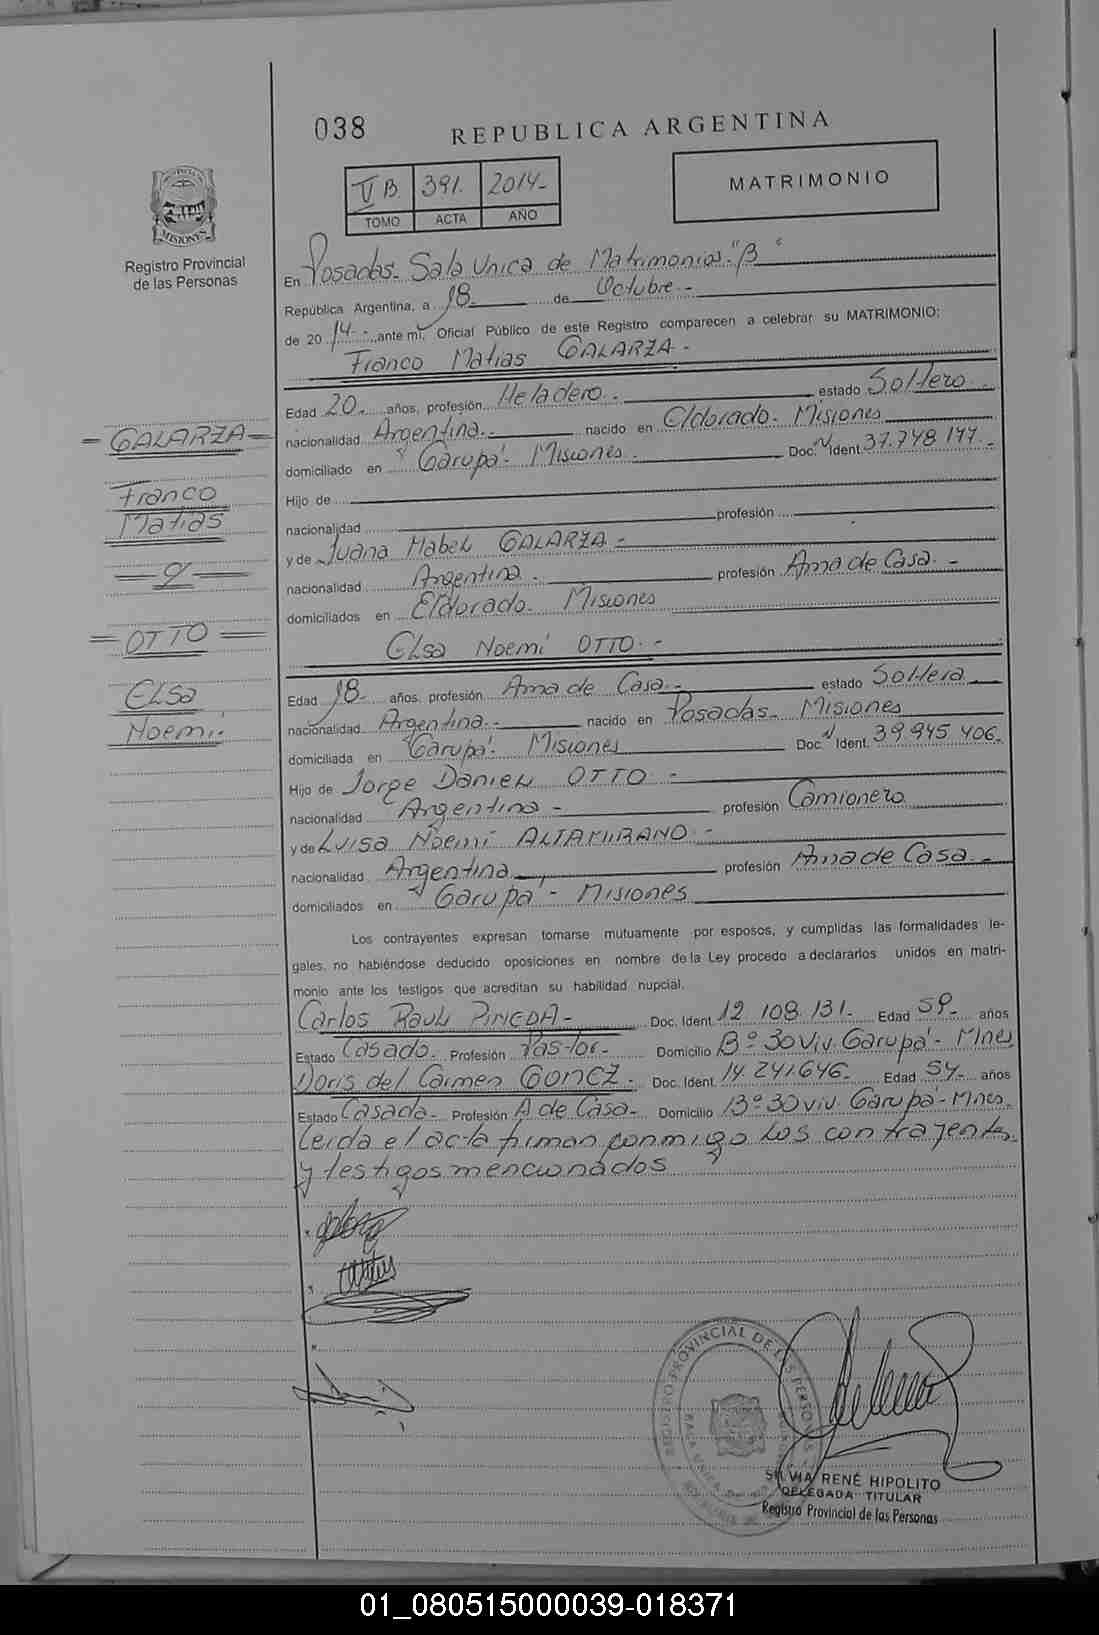 038
REPUBLICA ARGENTINA
V B. 391. 2014-
TOMO ACTA AÑO
MATRIMONIO
MISIONES
Registro Provincial
de las Personas
En Posadas- Sala Unica de Matrimonios-"B"
República Argentina, a 18- de Octubre.-
de 2014-, ante mí, Oficial Público de este Registro comparecen a celebrar su MATRIMONIO:
Franco Matias GALARZA-
Edad 20- años, profesión Heladero.- estado Soltero-
nacionalidad Argentina.- nacido en Eldorado- Misiones
domiciliado en Garupá- Misiones- Doc. N Ident. 37.748 177-
Hijo de
nacionalidad profesión
y de Juana Mabel GALARZA-
nacionalidad Argentina.- profesión Ama de Casa.-
domiciliados en Eldorado- Misiones
Elsa Noemi OTTO.-
Edad 18- años, profesión Ama de Casa.- estado Soltera
nacionalidad Argentina.- nacido en Posadas- Misiones
domiciliada en Garupá- Misiones Doc. N Ident. 39.945 406-
Hijo de Jorge Daniel OTTO-
nacionalidad Argentina- profesión Camionero
y de Luisa Noemi ALTAMIRANO-
nacionalidad Argentina profesión Ama de Casa-
domiciliados en Garupá- Misiones
Los contrayentes expresan tomarse mutuamente por esposos, y cumplidas las formalidades le-
gales, no habiéndose deducido oposiciones en nombre de la Ley procedo a declararlos unidos en matri-
monio ante los testigos que acreditan su habilidad nupcial.
Carlos Raul PINEDA- Doc. Ident. 12 108 131- Edad 59- años
Estado Casado- Profesión Pastor- Domicilio Bº 30 Viv. Garupá- Mnes
Doris del Carmen GOMEZ- Doc. Ident. 14.241.646- Edad 54- años
Estado Casada- Profesión A de Casa- Domicilio Bº 30 viv. Garupá-Mnes.
Leida el acta firman conmigo los contrayentes
y testigos mencionados
=GALARZA=
Franco
Matias
=y=
=OTTO=
Elsa
Noemi.
REGISTRO PROVINCIAL DE LAS PERSONAS
SILVIA RENÉ HIPOLITO
DELEGADA TITULAR
Registro Provincial de las Personas
01_080515000039-018371